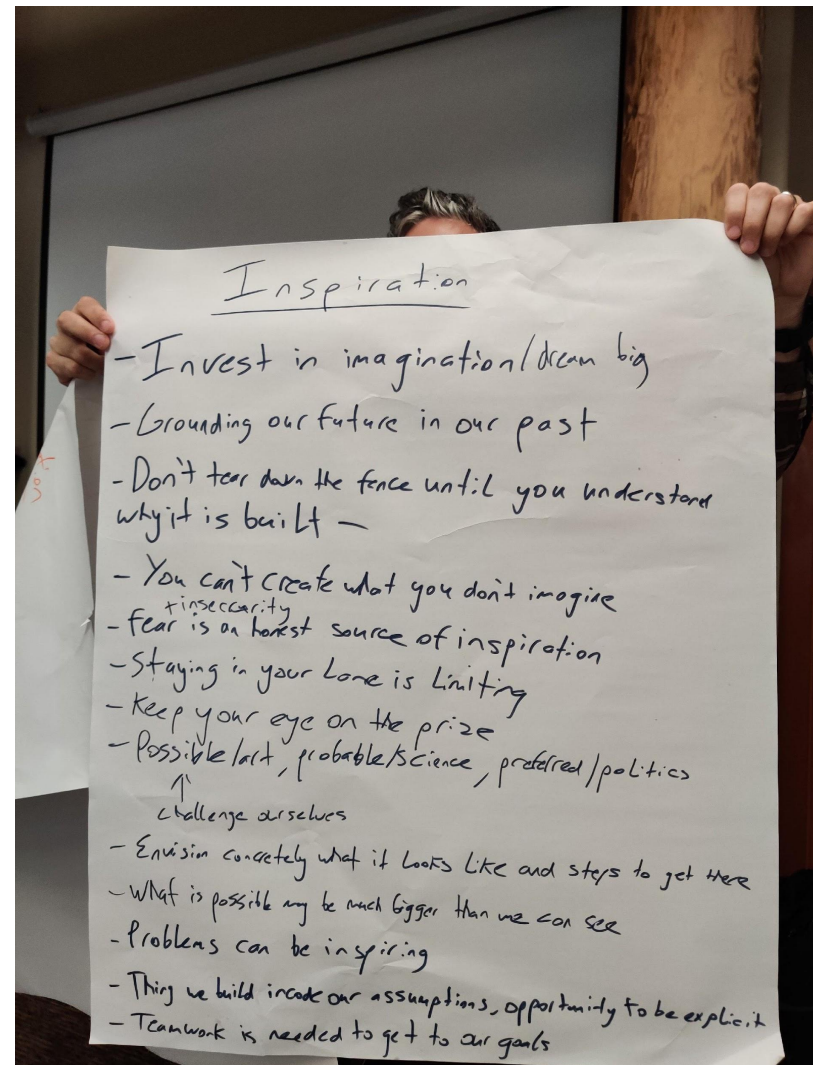 Inspiration
- Invest in imagination/dream big
- Grounding our future in our past
- Don't tear down the fence until you understand
why it is built -
- You can't create what you don't imagine
+ inseccurity
- Fear is an honest source of inspiration
- Staying in your Lane is Limiting
- Keep your eye on the prize
- Possible/art, probable/science, preferred/politics
↑
challenge ourselves
- Envision concretely what it Looks Like and steps to get there
- What is possible may be much bigger than we can see
- Problems can be inspiring
- Thing we build incode our assumptions, opportunity to be explicit
- Teamwork is needed to get to our goals